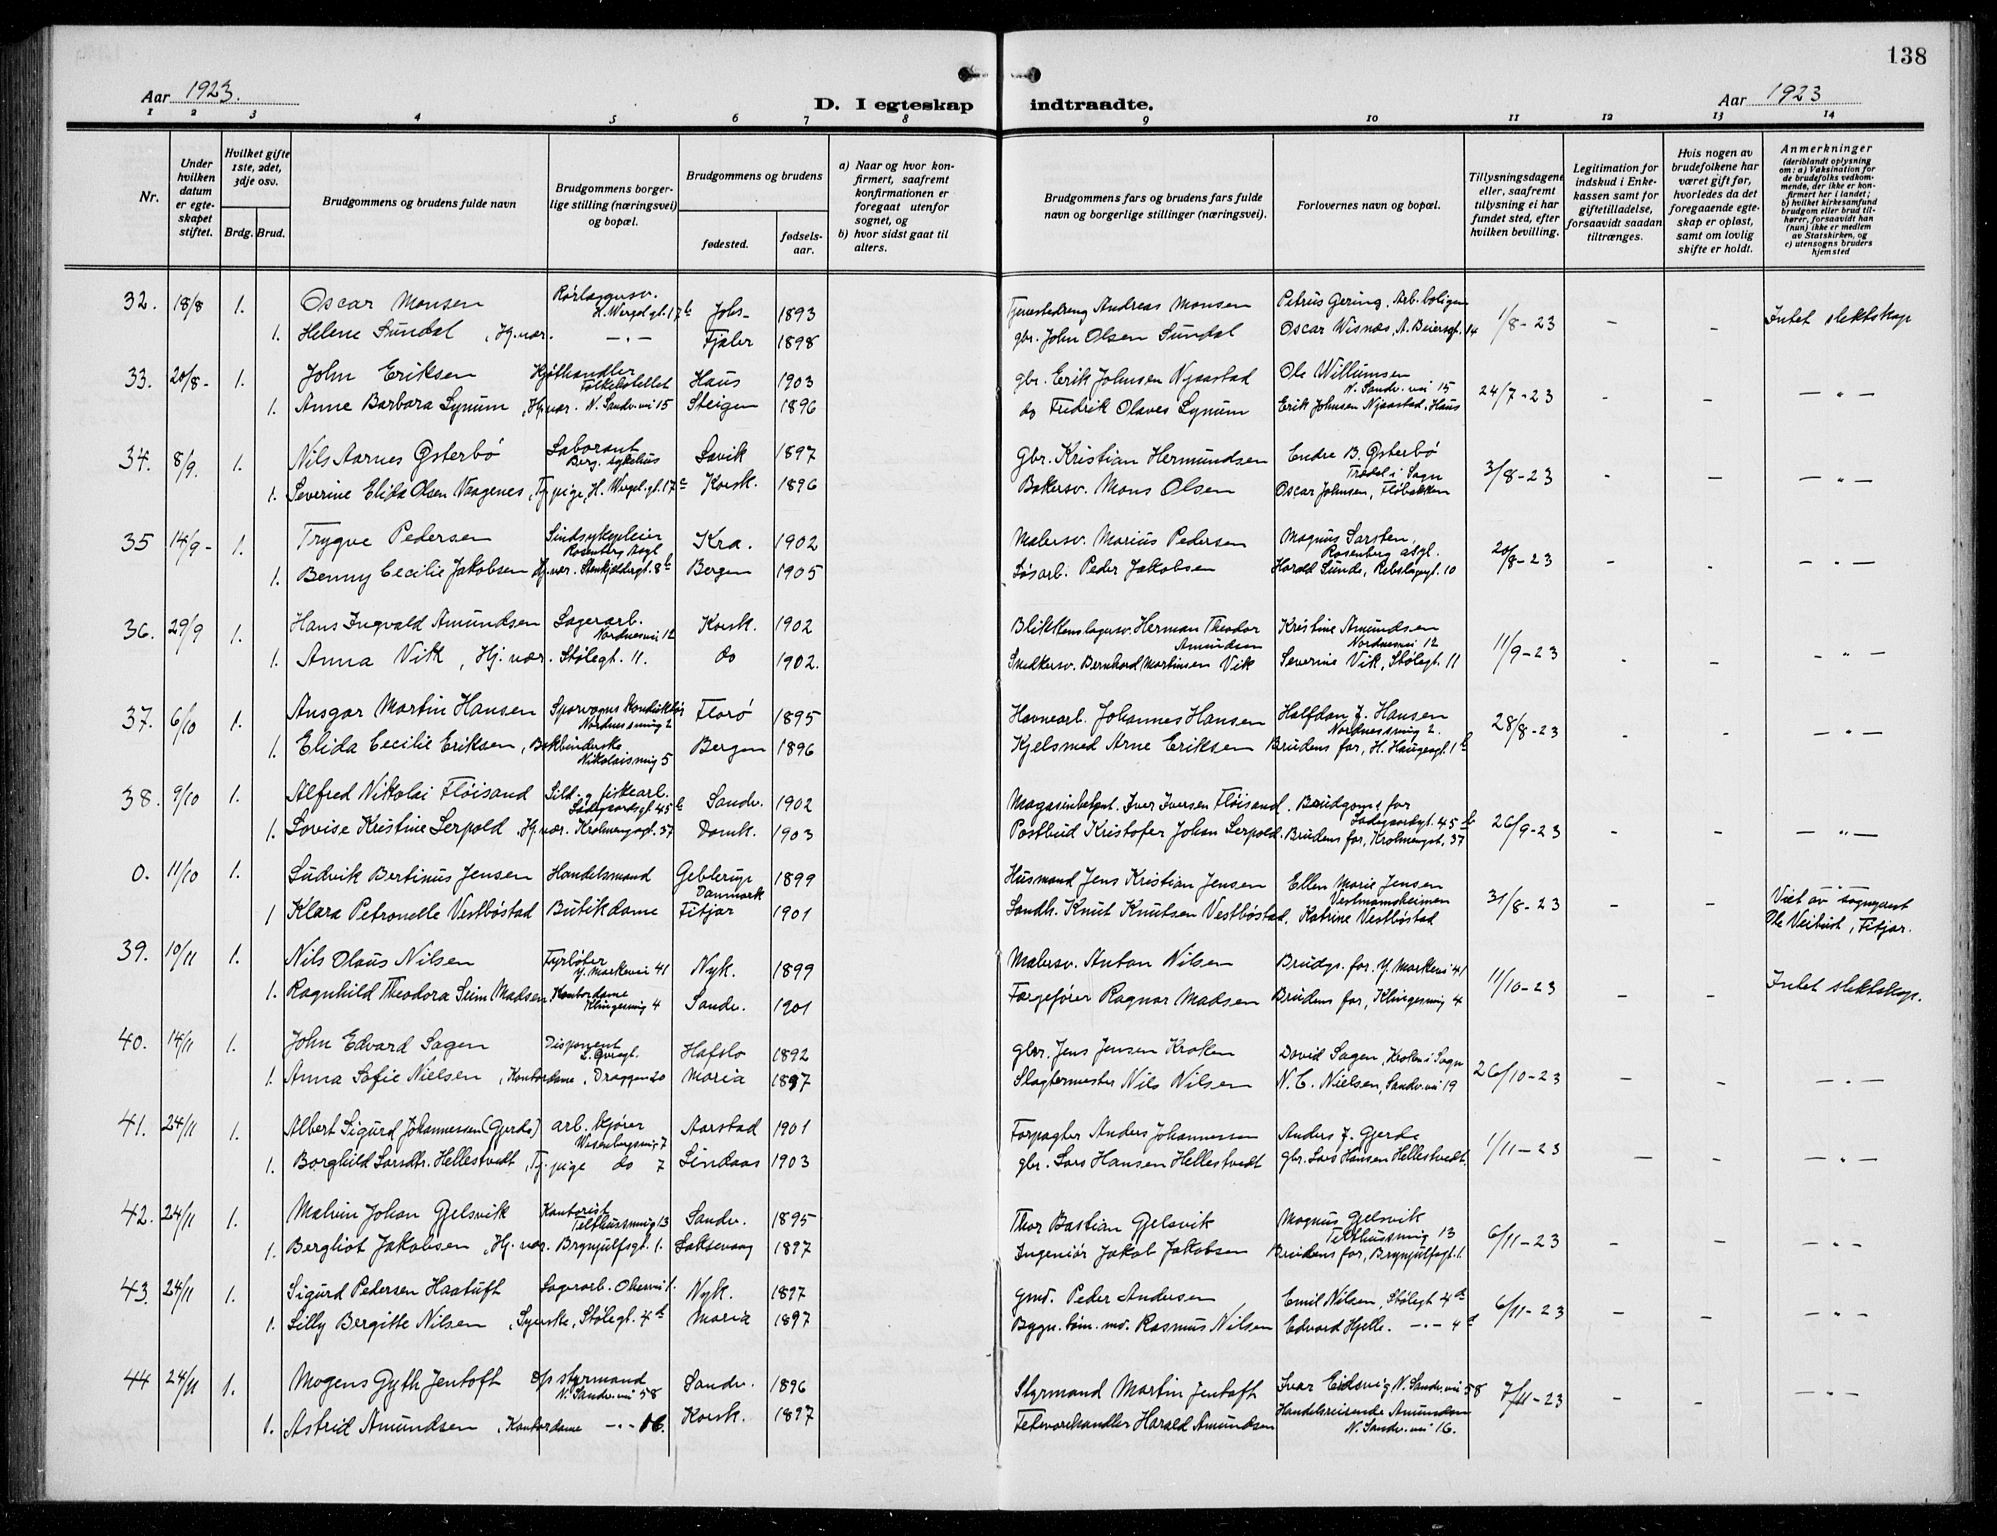 138
Aar 1923.
D. I egteskap indtraadte.
Aar 1923
1 2 3 4 5 6 7 8 9 10 11 12 13 14
Nr.
Under hvilken datum er egteskapet stiftet.
Hvilket gifte 1ste, 2det, 3dje osv.
Brdg. Brud.
Brudgommens og brudens fulde navn
Brudgommens borgerlige stilling (næringsvei) og bopæl.
Brudgommens og brudens
fødested.
fødselsaar.
a) Naar og hvor konfirmert, saafremt konfirmationen er foregaat utenfor sognet, og
b) hvor sidst gaat til alters.
Brudgommens fars og brudens fars fulde navn og borgerlige stillinger (næringsvei).
Forlovernes navn og bopæl.
Tillysningsdagene eller, saafremt tillysning ei har fundet sted, efter hvilken bevilling.
Legitimation for indskud i Enkekassen samt for giftetilladelse, forsaavidt saadan tiltrænges.
Hvis nogen av brudefolkene har været gift før, hvorledes da det foregaaende egteskap er opløst, samt om lovlig skifte er holdt.
Anmerkninger (deriblandt oplysning om: a) Vaksination for de brudefolks vedkommende, der ikke er konfirmert her i landet; b) hvilket kirkesamfund brudgom eller brud tilhører, forsaavidt han (hun) ikke er medlem av Statskirken, og c) utensogns bruders hjemsted
32. 18/8 1. Oscar Monsen Rørlæggersv. H. Wergel.gt. 17 b 1893 Andreas Monsen Petrus Gering, Arb.boligen 1/8-23 — — Intet slektskap
1. Helene Sundal, Hj.vær. —〃— Fjaler 1898 gbr. John Olsen Sundal Oscar Wisnæs, A. Beiersgt. 14
33. 20/8- 1. John Eriksen Kjøthandler Folkehotellet Haus 1903 gbr. Erik Johnsen Njaastad Ole Willumsen N. Sandv.vei 15 24/7-23 - — —〃—
1. Anne Barbara Synum, Hj.vær. N. Sandv.vei 15 Steigen 1896 do Fredrik Olaves Synum Erik Johnsen Njaastad, Haus
34. 8/9. 1. Nils Aarnes Østerbø Laborant Berg. sykehus Lavik 1897 Gbr. Kristian Hermundsen Endre B. Østerbø i Sogn 3/8-23 - — —〃—
1. Severine Elida Olsen Vaagenes, Tj.pige, H. Wergel.gt. 17 c Korsk. 1896 Bakersv. Mons Olsen Oscar Johnsen, Fløbakken
35 14/9- 1. Trygve Pedersen Sindsykepleier Rosenberg Asyl Kra. 1902 Malersv. Marius Pedersen Magnus Larsten, Rosenberg asyl. 20/8-23 - - —〃—
1. Benny Cecilie Jakobsen Hj.vær. Stenkjælbergt. 8 b Bergen 1905 Løsarb. Peder Jakobsen Harald Sunde, Rebslagergt. 10
36. 29/9 1. Hans Ingvald Amundsen Lagerarb. Nordnesvei 12 Korsk. 1902 Blikkenslagersv. Herman Theodor Amundsen Kristine Amundsen Nordnesvei 12 11/9-23 - - -〃—
1. Anna Vik, Hj.vær. Stølegt. 11. do 1902. Snedkersv. Bernhard Martinsen Vik Severine Vik, Stølegt. 11
37. 6/10 1. Ansgar Martin Hansen Sporvogns Konduktør Nordnessmug 2 Florø 1895 Havnearb. Johannes Hansen Halfdan J. Hansen Nordnessmug 2. 28/8-23 - - —〃—
1. Elida Cecilie Eriksen, Bokbinderske Nikolaismug 5 Bergen 1896 Kjelsmed Arne Eriksen Brudens far, H. Haugesgt. 1 b
38. 9/10 1. Alfred Nikolai Fløisand Sild- og fiskearb. Ladegaardsgt. 45 b Sandv. 1902 Magasinbetjent. Iver Iversen Fløisand. Brudgoms far Ladegaardsgt. 45 b 26/9-23 — — —〃—
1. Lovise Kristine Serpold, Hj.vær. Krohnengsgt. 37 Domk. 1903 Postbud Kristofer Johan Serpold. Brudens far, Krohnengst. 37
0. 11/10 1. Ludvik Bertinus Jensen Handelsmand Danmark 1899 Husmand Jens Kristian Jensen Ellen Marie Jensen Vestmannsheimen 31/8-23 - — Viet av sogneprest
1 Klara Petronelle Vestbøstad Butikdame Fitjar 1901 Landh. Knut Knutsen Vestbøstad, Katrine Vestbøstad Ole Veibust, Fitjar.
39. 10/11 1. Nils Olaus Nilsen Fyrbøter Y. Markevei 41 Nyk. 1899 Malersv. Anton Nilsen Brudgs. far. Y. Markevei 41 11/10-23 — - Intet slektskap.
1. Ragnhild Theodora Seim Madsen Kontordame Klingesmug 4 Sandv. 1901 Færgefører Ragnar Madsen Brudens far, Klingesmug 4
40. 14/11 1. John Edvard Sagen Disponent Hafslo 1892 gbr. Jens Jensen Kroken David Sagen, Kroken i Sogn 26/10-23 — — —〃—
1. Anna Sofie Nielsen, Kontordame, Dreggen 20 Maria 1897 Slagtermester Nils Nilsen N. C. Nielsen, Sandv.vei 19
41. 24/11 1. Albert Sigurd Johannessen (Gjerde) arb. kjører Wesenbergsmug 7 Aarstad 1901 Forpagter Anders Johannessen Anders J. Gjerde 1/11-23 — - —〃—
1. Borghild Larsdtr. Hellestvedt, Tj.pige do 7 Lindaas 1903 gbr. Lars Hansen Hellestvedt gbr. Lars Hansen Hellestvedt.
42. 24/11 1. Malvin Johan Gjelsvik Kontorist Telthussmug 13 Sandv. 1895 Thor Bastian Gjelsvik Magnus Gjelsvik Telthussmug 13 6/11-23 — - —〃—
1. Bergliot Jakobsen, Hj.vær. Brynjulfsgt. 1. Laksevaag 1897 Ingeniør Jakob Jakobsen Brudens far, Brynjulfsgt. 1
43. 24/11 1. Sigurd Pedersen Haatuft Lagerarb. Nyk. 1897 gmd. Peder Andersen Emil Nilsen, Stølegt 4 a 6/11-23 — — —〃—
1. Lilly Bergitte Nilsen, Syerske, Stølegt. 4 a Maria 1897 Bygn. tøm. md. Rasmus Nilsen Edvard Hjelle. —〃— 4 a
44 24/11 1. Mogens Gyth Jentoft d/s styrmand N. Sandv.vei 58 Sandv. 1896 Styrmand Martin Jentoft Ivar Eidsvig N. Sandv.vei 58 7/11-23 — - —〃—
1. Astrid Amundsen, Kontordame —〃— 16. Korsk. 1897 Fetevarehandler Harald Amundsen Handelsreisende Amundsen N. Sandv.vei 16.